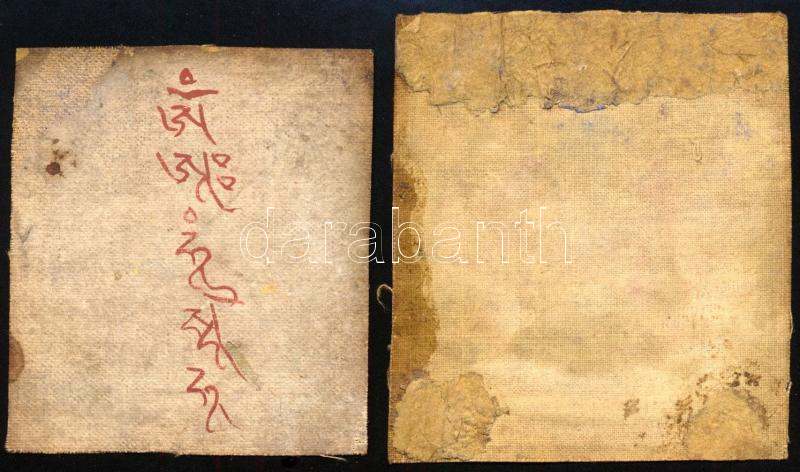 ཨོཾ
ཨཱཿ
ཧཱུཾ
སྭཱ
ཧཱ
darabanth